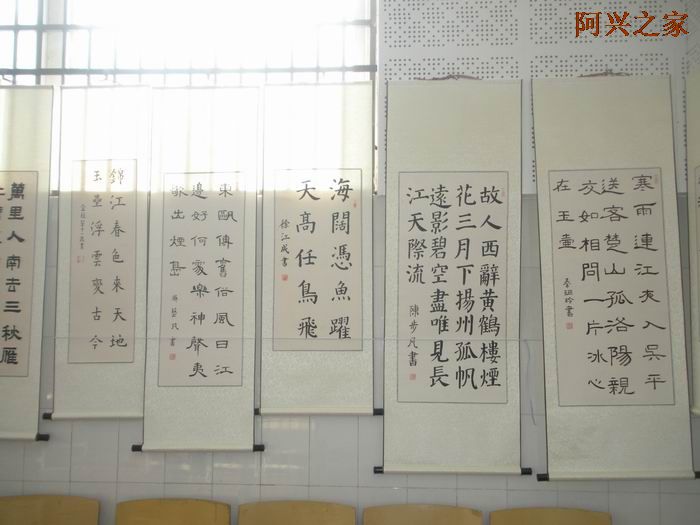 阿兴之家
寒雨連江夜入吳平
送客楚山孤洛陽親
友如相問一片冰心
在玉壺
故人西辭黄鶴樓煙
花三月下揚州孤帆
遠影碧空盡唯見長
江天際流
陳步凡書
海闊憑魚躍
天高任鳥飛
徐江成書
東甌傳舊俗風日江
邊好何處樂神聲夷
歌出煙島
錦江春色來天地
玉壘浮雲變古今
萬里人南去三秋雁